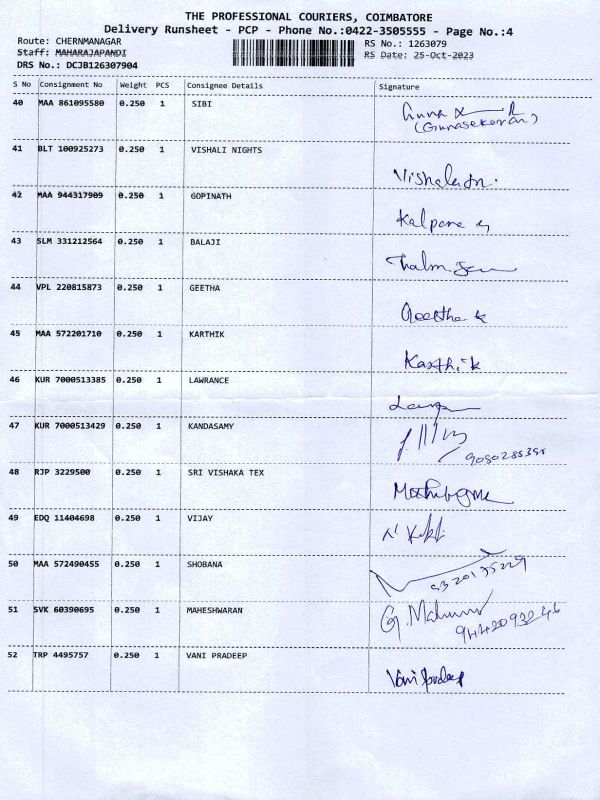 THE PROFESSIONAL COURIERS, COIMBATORE
Delivery Runsheet - PCP - Phone No.:0422-3505555 - Page No.:4
Route: CHERNMANAGAR RS No.: 1263079
Staff: MAHARAJAPANDI RS Date: 25-Oct-2023
DRS No.: DCJB126307904
S No Consignment No Weight PCS Consignee Details Signature
40 MAA 861095580 0.250 1 SIBI
(Gunasekaran)
41 BLT 100925273 0.250 1 VISHALI NIGHTS
42 MAA 944317909 0.250 1 GOPINATH
Kalpana
43 SLM 331212564 0.250 1 BALAJI
44 VPL 220815873 0.250 1 GEETHA
Geetha k
45 MAA 572201710 0.250 1 KARTHIK
Karthik
46 KUR 7000513385 0.250 1 LAWRANCE
47 KUR 7000513429 0.250 1 KANDASAMY
48 RJP 3229500 0.250 1 SRI VISHAKA TEX
49 EDQ 11404698 0.250 1 VIJAY
50 MAA 572490455 0.250 1 SHOBANA
51 SVK 60390695 0.250 1 MAHESHWARAN
9442093246
52 TRP 4495757 0.250 1 VANI PRADEEP
Vani Pradeep